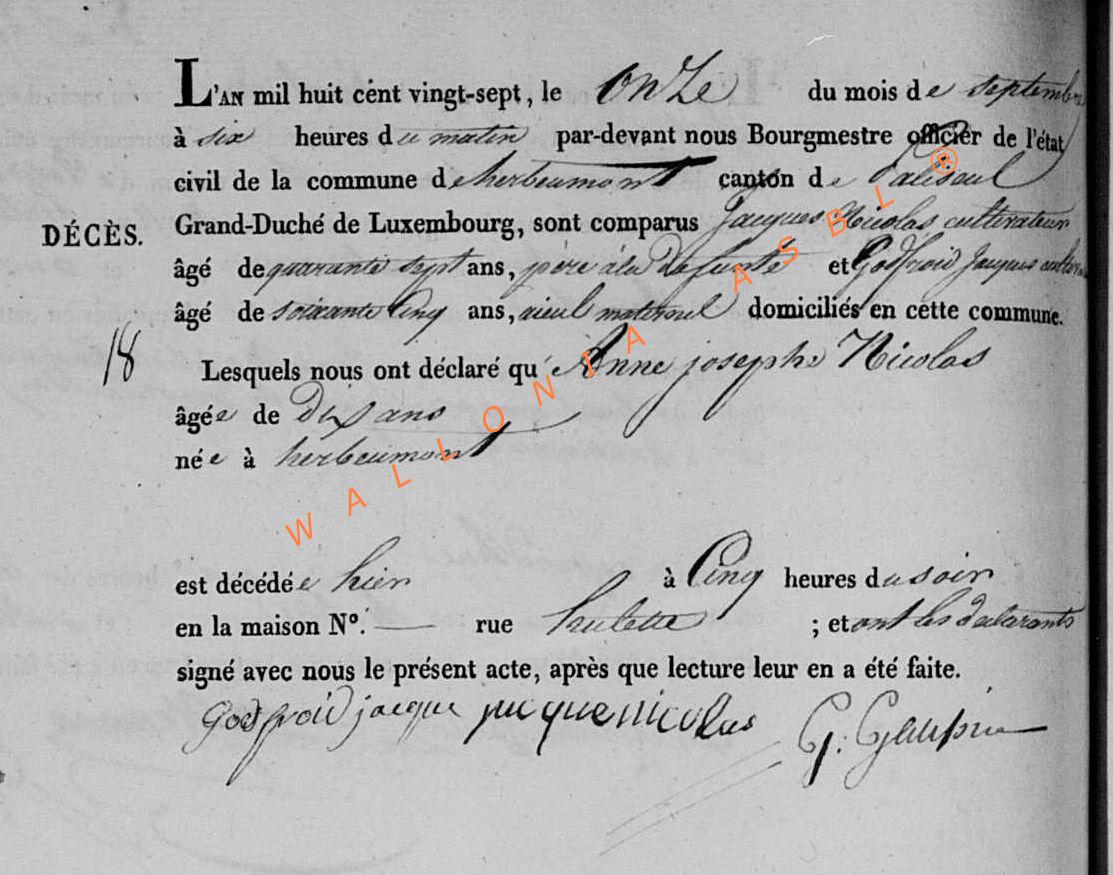 L'AN mil huit cent vingt-sept, le onze du mois de septembre
à six heures du matin par-devant nous Bourgmestre officier de l'état
civil de la commune d'herbeumont canton de Paliseul
Grand-Duché de Luxembourg, sont comparus Jacques Nicolas cultivateur
DÉCÈS.
âgé de quarante sept ans, père à la défunte et Godfroid Jacques
âgé de soixante Cinq ans, aieul maternel domiciliés en cette commune.
18
Lesquels nous ont déclaré qu'Anne josephe Nicolas
âgée de ans
née à herbeumont
est décédée hier à Cinq heures du soir
en la maison N°. — rue ; et ont les déclarants
signé avec nous le présent acte, après que lecture leur en a été faite.
Godfroid jacque jacque nicolas G.
WALLONIA ASBL ®